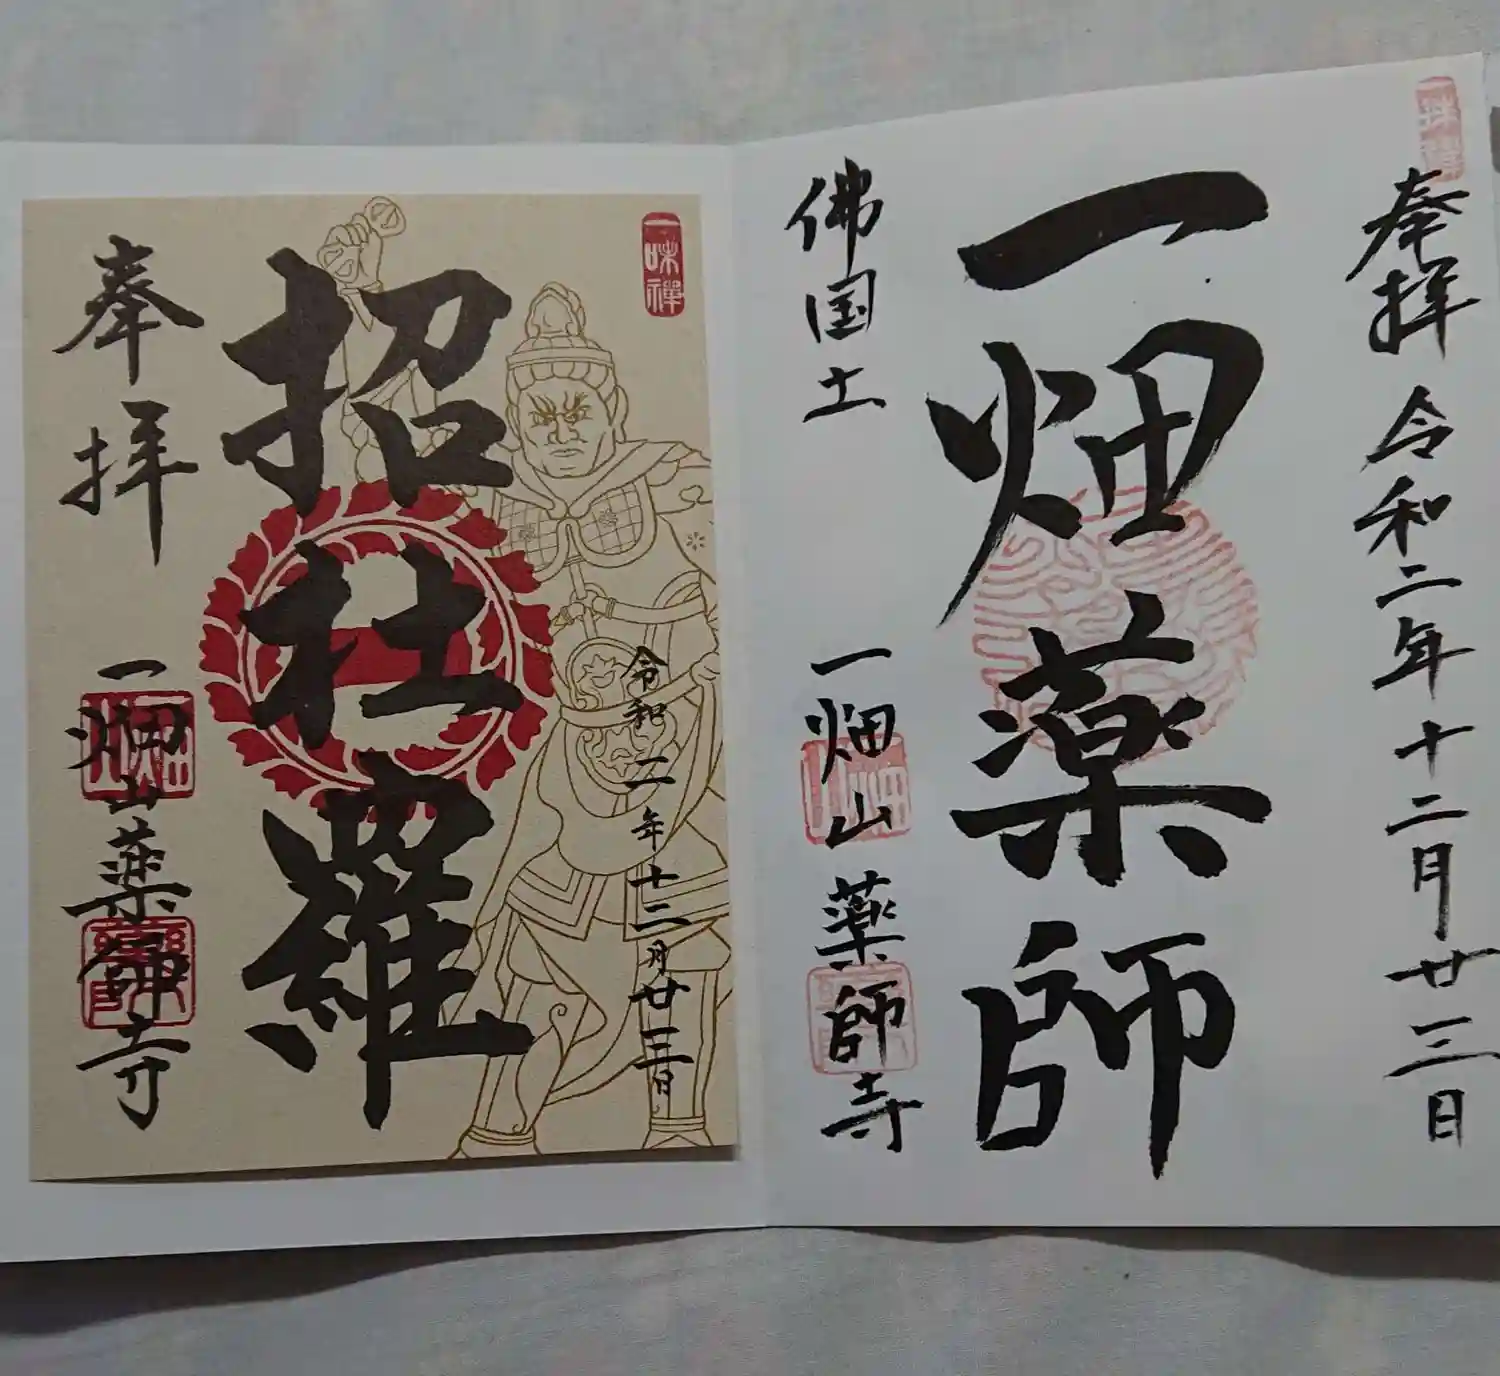 奉拝 令和二年十二月廿三日
一畑薬師
佛国土 一畑山薬師寺
一味禅
令和二年十二月廿三日
招杜羅
奉拝 一畑山薬師寺